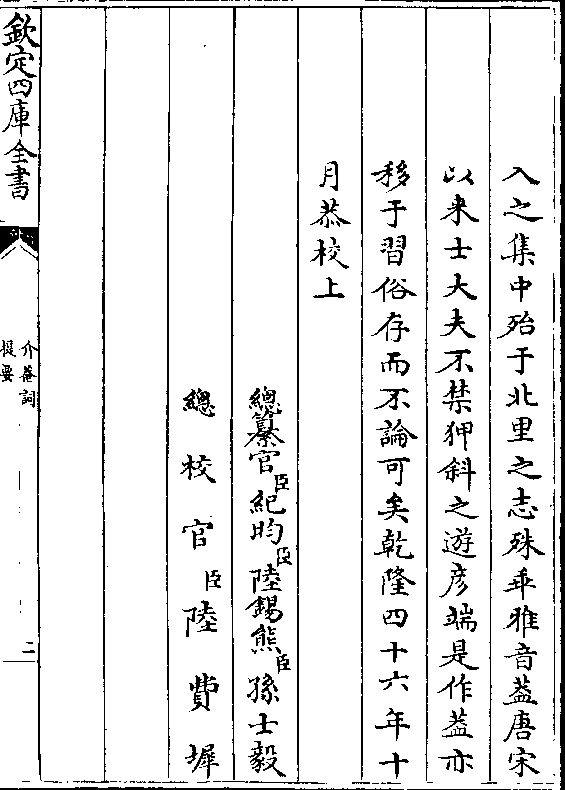 入之集中殆于北里之志殊乖雅音葢唐宋
以来士大夫不禁狎斜之遊彦端是作葢亦
移于習俗存而不論可矣乾隆四十六年十
月恭校上
總纂官臣紀昀臣陸錫熊臣孫士毅
總校官臣陸費墀
欽定四庫全書
介菴詞
提要
二